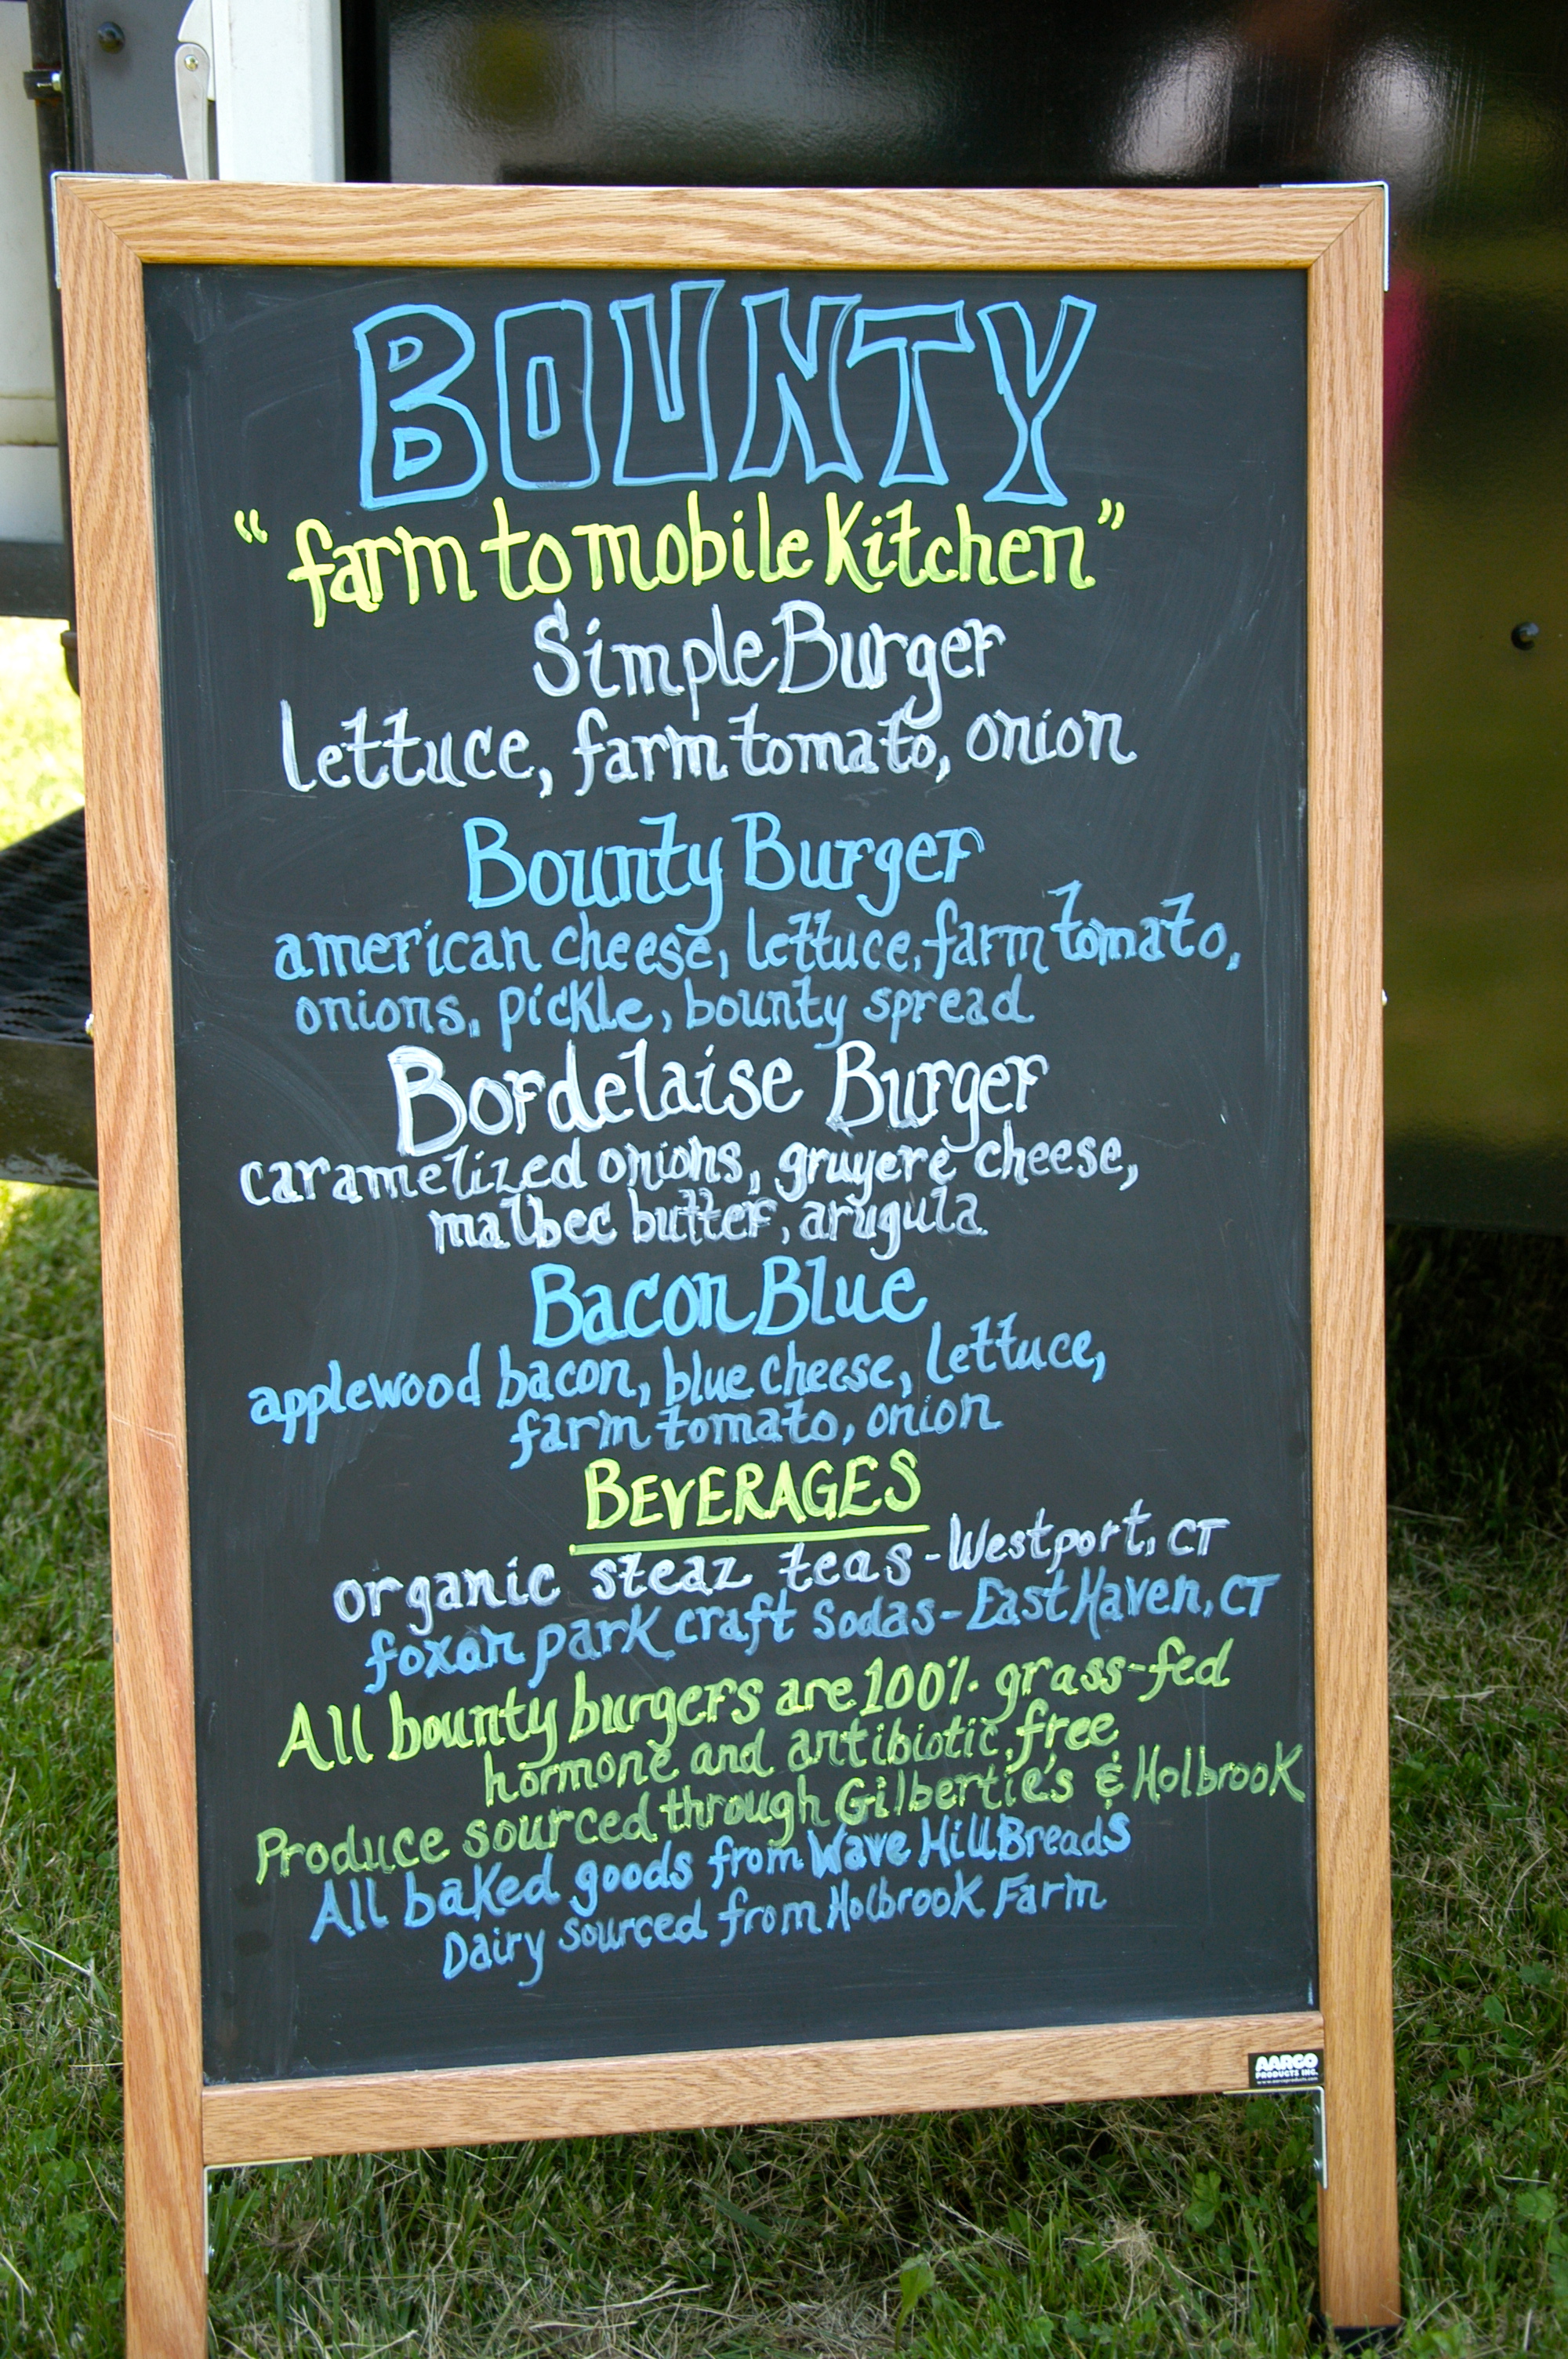 BOUNTY
"farm to mobile Kitchen"
Simple Burger
lettuce, farm tomato, onion
Bounty Burger
american cheese, lettuce, farm tomato,
onions, pickle, bounty spread
Bordelaise Burger
caramelized onions, gruyere cheese,
malbec butter, arugula
Bacon Blue
applewood bacon, blue cheese, lettuce,
farm tomato, onion
BEVERAGES
organic steaz teas - Westport, CT
foxon park craft sodas - East Haven, CT
All bounty burgers are 100% grass-fed
hormone and antibiotic free
Produce sourced through Gilbertie's & Holbrook
All baked goods from Wave Hill Breads
Dairy sourced from Holbrook Farm
AARCO
PRODUCTS INC.